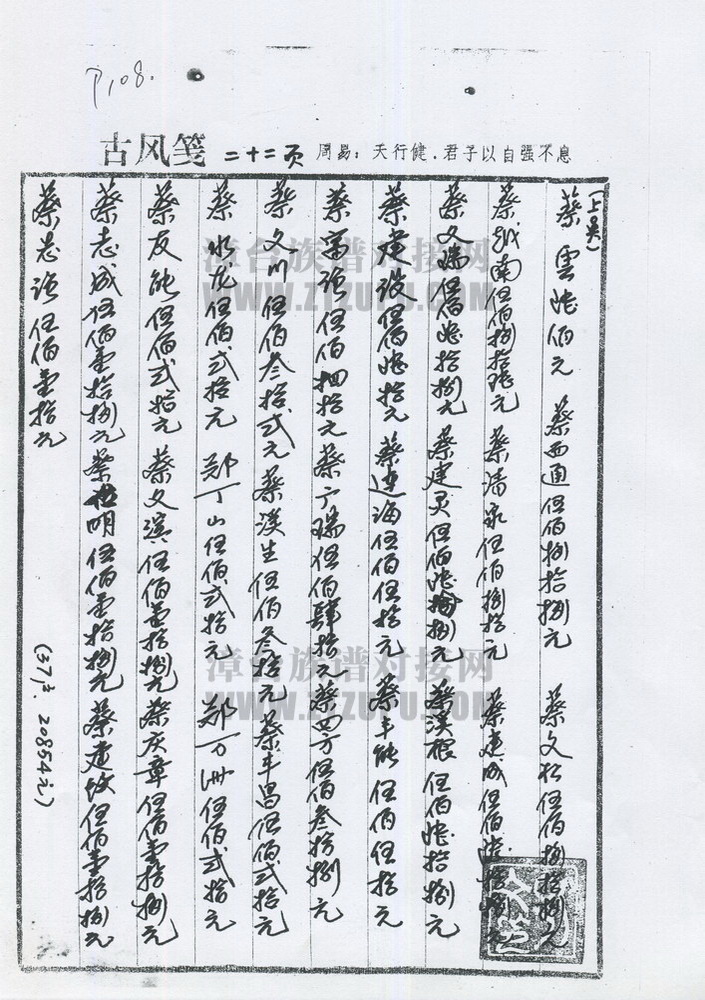 P108.
古风笺 二十二页 周易：天行健．君子以自强不息
(上吴)
蔡雲陸佰元 蔡西通伍佰捌拾捌元 蔡文松伍佰捌拾捌元
蔡越南伍佰捌拾 元 蔡清泉伍佰捌拾元 蔡建成伍佰陸拾
蔡文瑞伍佰陸拾捌元 蔡建灵伍佰陸拾捌元 蔡溪根伍佰陸拾捌元
蔡建設伍佰陸拾元 蔡建海伍佰伍拾元 蔡丰能伍佰伍拾元
蔡富强伍佰肆拾元 蔡广瑞伍佰肆拾元 蔡四方伍佰叁拾捌元
蔡文川伍佰叁拾贰元 蔡溪生伍佰叁拾元 蔡丰昌伍佰贰拾元
蔡水龙伍佰贰拾元 郑丁山伍佰贰拾元 郑万洲伍佰贰拾元
蔡友能伍佰贰拾元 蔡文滨伍佰壹拾捌元 蔡庆章伍佰壹拾捌元
蔡志成伍佰壹拾捌元 蔡 明伍佰壹拾捌元 蔡建 伍佰壹拾捌元
蔡志强伍佰壹拾元
(37 . 20854元)
漳台族谱对接网
WWW.ZTZUPU.COM
漳台族谱对接网
WWW.ZTZUPU.COM